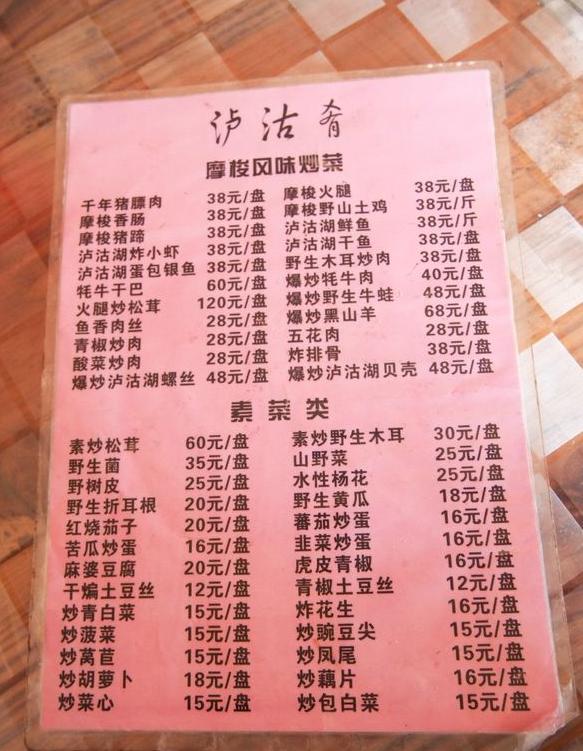 泸沽肴
摩梭风味炒菜
千年猪膘肉 38元/盘 摩梭火腿 38元/盘
摩梭香肠 38元/盘 摩梭野山土鸡 38元/斤
摩梭猪蹄 38元/盘 泸沽湖鲜鱼 38元/斤
泸沽湖炸小虾 38元/盘 泸沽湖干鱼 38元/盘
泸沽湖蛋包银鱼 38元/盘 野生木耳炒肉 38元/盘
牦牛干巴 60元/盘 爆炒牦牛肉 40元/盘
火腿炒松茸 120元/盘 爆炒野生牛蛙 48元/盘
鱼香肉丝 28元/盘 爆炒黑山羊 68元/盘
青椒炒肉 28元/盘 五花肉 28元/盘
酸菜炒肉 28元/盘 炸排骨 38元/盘
爆炒泸沽湖螺丝 48元/盘 爆炒泸沽湖贝壳 48元/盘
素菜类
素炒松茸 60元/盘 素炒野生木耳 30元/盘
野生菌 35元/盘 山野菜 25元/盘
野树皮 25元/盘 水性杨花 25元/盘
野生折耳根 20元/盘 野生黄瓜 18元/盘
红烧茄子 20元/盘 蕃茄炒蛋 16元/盘
苦瓜炒蛋 16元/盘 韭菜炒蛋 16元/盘
麻婆豆腐 20元/盘 虎皮青椒 16元/盘
干煸土豆丝 12元/盘 青椒土豆丝 12元/盘
炒青白菜 15元/盘 炸花生 16元/盘
炒菠菜 15元/盘 炒豌豆尖 15元/盘
炒莴苣 15元/盘 炒凤尾 15元/盘
炒胡萝卜 18元/盘 炒藕片 16元/盘
炒菜心 15元/盘 炒包白菜 15元/盘